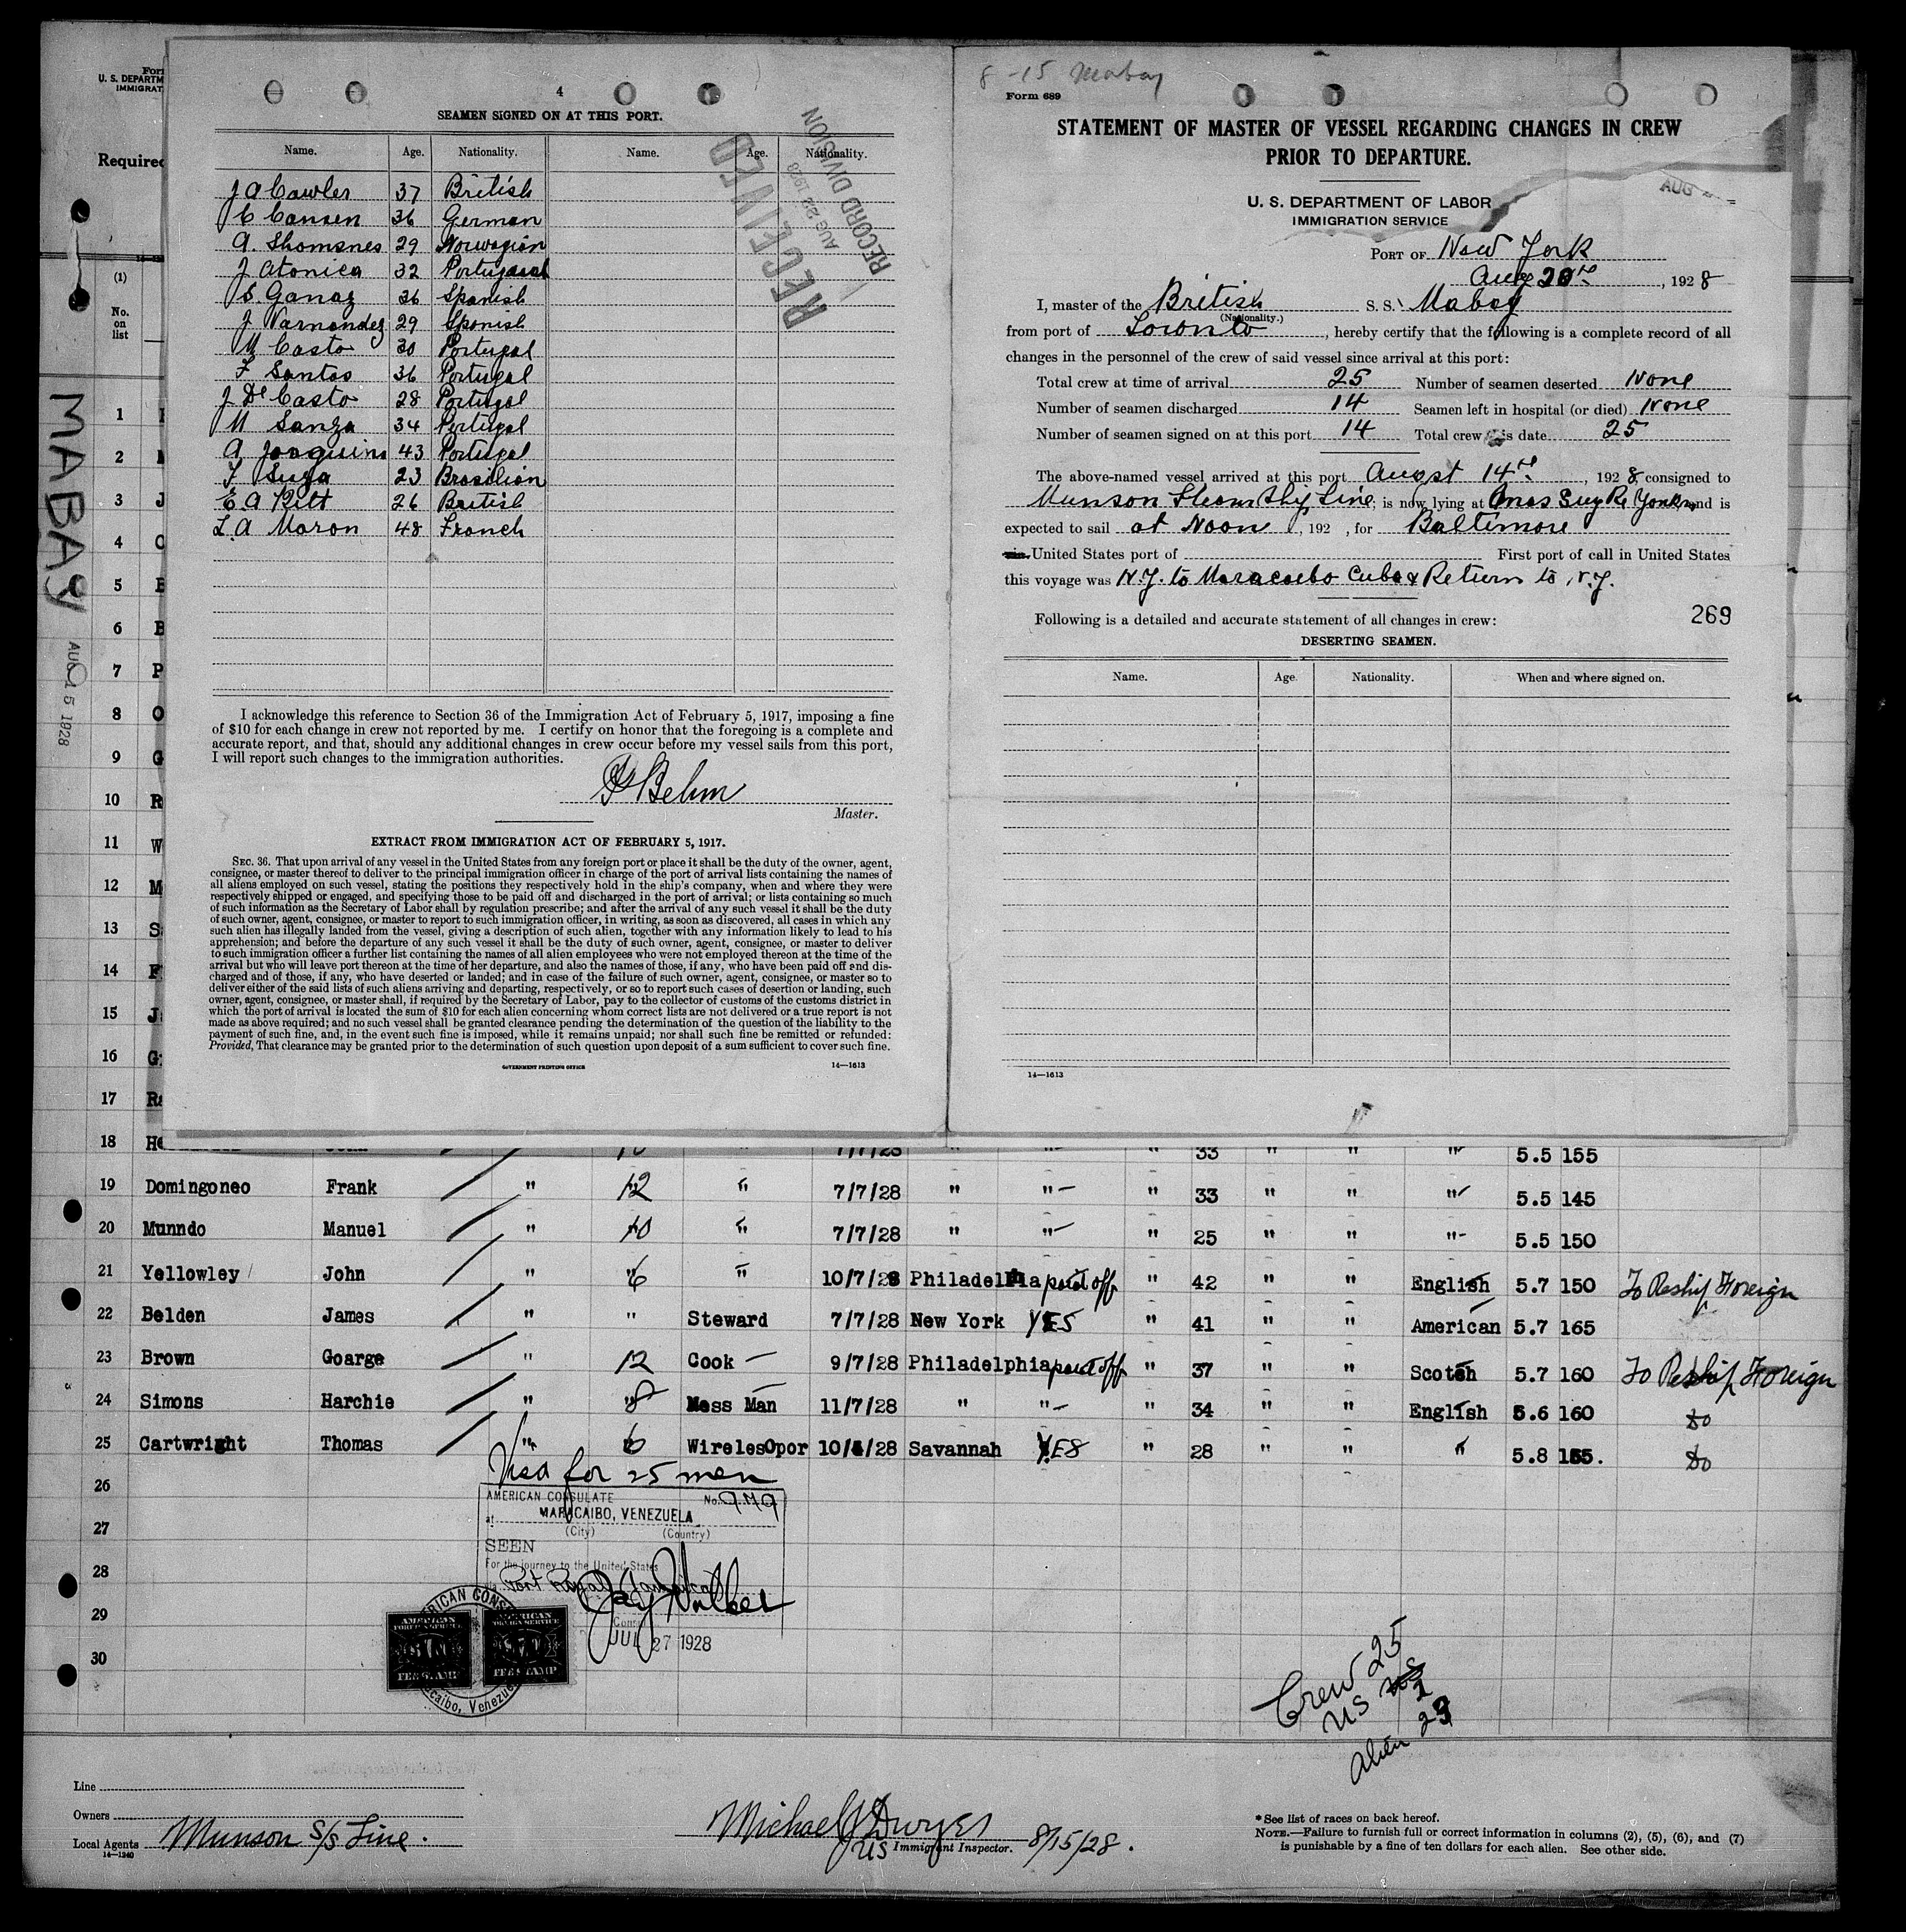 Form
U. S. DEPARTM
IMMIGRAT
Required
(1)
No.
on
list
MABAY
AUG 15 1928
4
SEAMEN SIGNED ON AT THIS PORT.
Name. Age. Nationality. Name. Age. Nationality.
RECEIVED
AUG 22 1928
RECORD DIVISION
J A Cawler 37 British
C Cansen 36 German
A. Thomsnes 29 Norwegian
J Atonica 32 Portugaal
S. Ganaz 36 Spanish
J Varnandez 29 Spanish
M Casto 30 Portugal
F Santos 36 Portugal
J De Casto 28 Portugal
M Sanza 34 Portugal
A Joaquins 43 Portugal
F Suza 23 Brasilian
E A Pitt 26 British
L. A Maron 48 French
I acknowledge this reference to Section 36 of the Immigration Act of February 5, 1917, imposing a fine
of $10 for each change in crew not reported by me. I certify on honor that the foregoing is a complete and
accurate report, and that, should any additional changes in crew occur before my vessel sails from this port,
I will report such changes to the immigration authorities.
Behm
Master.
EXTRACT FROM IMMIGRATION ACT OF FEBRUARY 5, 1917.
SEC. 36. That upon arrival of any vessel in the United States from any foreign port or place it shall be the duty of the owner, agent,
consignee, or master thereof to deliver to the principal immigration officer in charge of the port of arrival lists containing the names of
all aliens employed on such vessel, stating the positions they respectively hold in the ship's company, when and where they were
respectively shipped or engaged, and specifying those to be paid off and discharged in the port of arrival; or lists containing so much
of such information as the Secretary of Labor shall by regulation prescribe; and after the arrival of any such vessel it shall be the duty
of such owner, agent, consignee, or master to report to such immigration officer, in writing, as soon as discovered, all cases in which any
such alien has illegally landed from the vessel, giving a description of such alien, together with any information likely to lead to his
apprehension; and before the departure of any such vessel it shall be the duty of such owner, agent, consignee, or master to deliver
to such immigration officer a further list containing the names of all alien employees who were not employed thereon at the time of the
arrival but who will leave port thereon at the time of her departure, and also the names of those, if any, who have been paid off and dis-
charged and of those, if any, who have deserted or landed; and in case of the failure of such owner, agent, consignee, or master so to
deliver either of the said lists of such aliens arriving and departing, respectively, or so to report such cases of desertion or landing, such
owner, agent, consignee, or master shall, if required by the Secretary of Labor, pay to the collector of customs of the customs district in
which the port of arrival is located the sum of $10 for each alien concerning whom correct lists are not delivered or a true report is not
made as above required; and no such vessel shall be granted clearance pending the determination of the question of the liability to the
payment of such fine, and, in the event such fine is imposed, while it remains unpaid; nor shall such fine be remitted or refunded:
Provided, That clearance may be granted prior to the determination of such question upon deposit of a sum sufficient to cover such fine.
GOVERNMENT PRINTING OFFICE 14—1613
8-15 Mabay
Form 689
STATEMENT OF MASTER OF VESSEL REGARDING CHANGES IN CREW
PRIOR TO DEPARTURE.
U. S. DEPARTMENT OF LABOR
IMMIGRATION SERVICE
AUG
PORT OF New York
Aug 20th, 1928
I, master of the British S. S. Mabay
(Nationality.)
from port of Toronto, hereby certify that the following is a complete record of all
changes in the personnel of the crew of said vessel since arrival at this port:
Total crew at time of arrival 25 Number of seamen deserted None
Number of seamen discharged 14 Seamen left in hospital (or died) None
Number of seamen signed on at this port 14 Total crew this date 25
The above-named vessel arrived at this port Augst 14th, 1928, consigned to
Munson Steam Ship Line; is now lying at Yonkers and is
expected to sail at Noon, 192 , for Baltimore
via United States port of First port of call in United States
this voyage was N.Y. to Maracaibo Cuba & Return to N.Y.
269
Following is a detailed and accurate statement of all changes in crew:
DESERTING SEAMEN.
Name. Age. Nationality. When and where signed on.
14—1613
1
2
3 J
4
5
6
7 P
8 O
9 G
10 R
11 W
12 M
13 S
14 F
15 J
16 G
17 Ra
18 He 10 " 7/7/28 " " " 33 " " " 5.5 155
19 Domingoneo Frank " 12 " 7/7/28 " " " 33 " " " 5.5 145
20 Munndo Manuel " 10 " 7/7/28 " " " 25 " " " 5.5 150
21 Yellowley John " 6 " 10/7/28 Philadelphia paid off " 42 " " English 5.7 150 To Reship Foreign
22 Belden James " " Steward 7/7/28 New York YES " 41 " " American 5.7 165
23 Brown Goarge " 12 Cook 9/7/28 Philadelphia paid off " 37 " " Scotch 5.7 160 To Reship Foreign
24 Simons Harchie " 8 Mess Man 11/7/28 " " " 34 " " English 5.6 160 do
25 Cartwright Thomas " 6 WirelesOpor 10/4/28 Savannah YES " 28 " " " 5.8 155. do
26
27
28
29
30
Visa for 25 men
AMERICAN CONSULATE No.
at MARACAIBO, VENEZUELA
(City) (Country)
SEEN
For the journey to the United States
via Port Royal Jamaica
Jay Walker
Consul
JUL 27 1928
AMERICAN FOREIGN SERVICE FEE STAMP
AMERICAN FOREIGN SERVICE FEE STAMP
Crew 25
US 2
Alien 23
Line
Owners
Local Agents Munson S/S Line.
14—1240
Michael J Dwyer
US Immigrant Inspector. 8/15/28.
* See list of races on back hereof.
NOTE.—Failure to furnish full or correct information in columns (2), (5), (6), and (7)
is punishable by a fine of ten dollars for each alien. See other side.